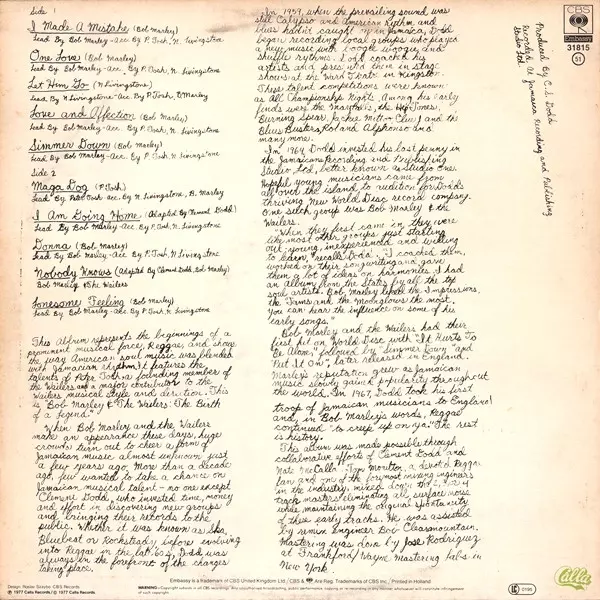 Side 1
I Made A Mistake (Bob Marley)
Lead By Bob Marley - Acc By P. Tosh, N. Livingstone
One Love (Bob Marley)
Lead By Bob Marley - Acc. By P. Tosh, N. Livingstone
Let Him Go (N. Livingstone)
Lead By N. Livingstone - Acc By P. Tosh, B Marley
Love and Affection (Bob Marley)
Lead By Bob Marley - Acc. By P. Tosh, N. Livingstone
Simmer Down (Bob Marley)
Lead By Bob Marley - Acc. By P. Tosh, N. Livingstone
Side 2
Maga Dog (P. Tosh)
Lead By Peter Tosh acc. By N. Livingstone, B. Marley
I Am Going Home (Adapted By Clement Dodd)
Lead By Bob Marley - Acc By P. Tosh, N. Livingstone
Donna (Bob Marley)
Lead By Bob Marley Acc By P. Tosh, N. Livingstone
Nobody Knows (Adapted By Clement Dodd, Bob Marley)
Bob Marley & The Wailers
Lonesome Feeling (Bob Marley)
Lead By Bob Marley - Acc. By P. Tosh, N. Livingstone
This Album represents the beginnings of a
prominent musical force, Reggae, and shows
the way American soul music was blended
with Jamaican rhythm. It features the
talents of Peter Tosh, a founding member of
the Wailers and a major contributor to the
Wailers musical style and direction. This
is "Bob Marley & The Wailers: The Birth
of a legend."
When Bob Marley and the Wailers
make an appearance these days, huge
crowds turn out to cheer a form of
Jamaican music almost unknown just
a few years ago. More than a decade
ago, few wanted to take a chance on
Jamaican musical talent - no one except
Clement Dodd, who invested time, money
and effort in discovering new groups
and bringing their records to the
public. Whether it was known as Ska,
Bluebeat or Rocksteady before evolving
into Reggae in the late 60s, Dodd was
always in the forefront of the changes
taking place.
In 1959, when the prevailing sound was
still Calypso and American Rhythm and
blues hadn't caught on in Jamaica, Dodd
began recording local groups who played
a new music with boogie woogie and
shuffle rhythms. Dodd coached his
artists and presented them in stage
shows at the Ward Theatre in Kingston.
These talent competitions were known
as All Championship Nights. Among his early
finds were the Maytals, the Heptones,
Burning Spear, Jackie Mittoo, Clue J and the
Blues Busters, Roland Alphonso and
many more.
In 1964, Dodd invested his last penny in
the Jamaica Recording and Publishing
Studio, Ltd, better known as Studio One.
Hopeful young musicians came from
all over the island to audition for Dodds
thriving New World Disc record company.
One such group was Bob Marley & the
Wailers.
"When they first came in they were
like most other groups just starting
out: young, inexperienced and willing
to learn," recalls Dodd. "I coached them,
worked on their songwriting and gave
them a lot of ideas on harmonies. I had
an album from the States by all the top
soul artists. Bob Marley liked the Impressions,
the Tams and the Moonglows the most.
You can hear the influence on some of his
early songs."
Bob Marley and the Wailers had their
first hit on World Disc with "It Hurts To
Be Alone," followed by "Simmer Down" and
"Put It On", later released in England.
Marley's reputation grew as Jamaican
music slowly gained popularity throughout
the world. In 1967, Dodd took his first
troop of Jamaican musicians to England
and, in Bob Marley's words, Reggae
continued "to creep up on ya." The rest
is history.
This album was made possible through
collaborative efforts of Clement Dodd and
Nate McCalla. Tom Moulton, a devoted Reggae
fan and one of the foremost mixing engineers
in the industry, mixed
track masters, eliminating all surface noise
while maintaining the original spontaneity
of these early tracks. He was assisted
by remix Engineer Bob Clearmountain.
Mastering was done by Jose Rodriguez
at Frankford/Wayne Mastering Labs in
New York.
Produced By C.S. Dodd
Recorded At Jamaica Recording and Publishing
Studio Ltd.
CBS
Embassy
31815
51
Design: Roslav Szaybo CBS Records
℗ 1977 Calla Records © 1977 Calla Records
Embassy is a trademark of CBS United Kingdom Ltd./CBS & Are Reg. Trademarks of CBS Inc., Printed in Holland
LC 0195
Calla